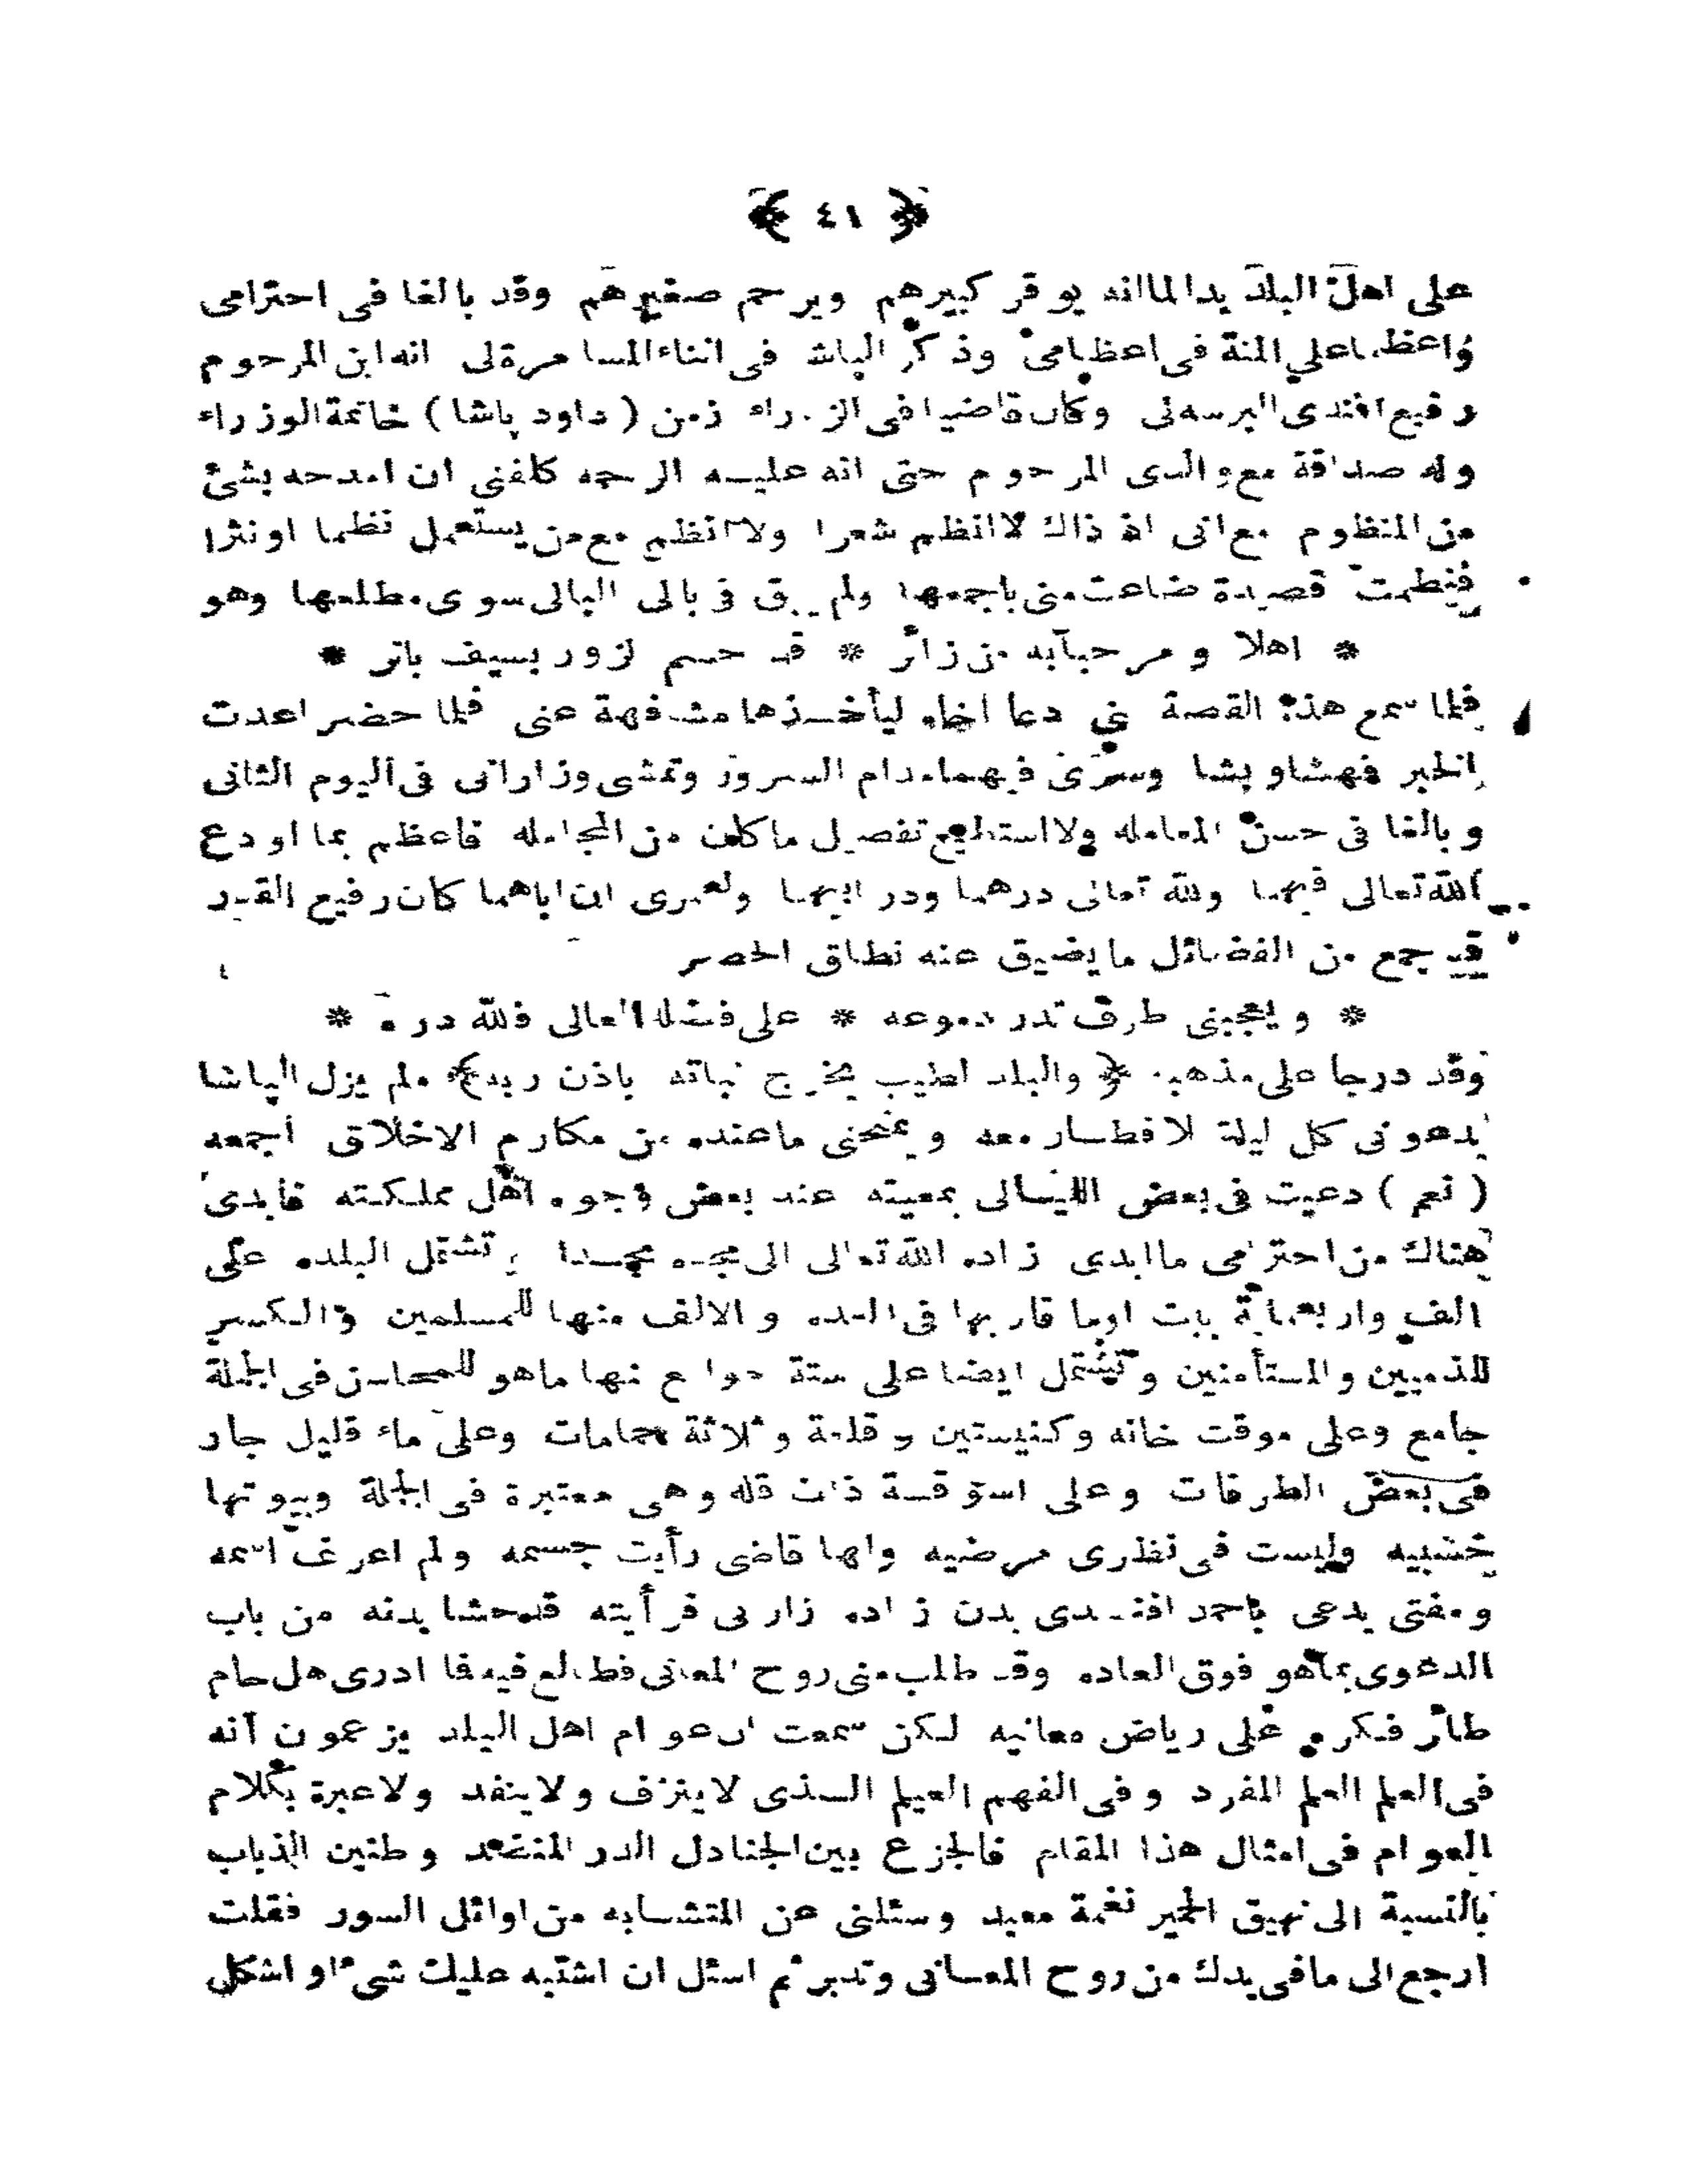 ﴿ ٤١ ﴾
على اهل البلد يدا لما انه يوقر كبيرهم ويرحم صغيرهم وقد بالغا فى احترامى
واعظما على المنة فى اعظامى وذكر الباشا فى اثناء المسامرة لى انه ابن المرحوم
رفيع افندى البرسه لى وكان قاضيا فى الزوراء زمن ( داود پاشا ) خاتمة الوزراء
وله صداقة مع والدى المرحوم حتى انه عليه الرحمه كلفنى ان امدحه بشئ
من المنظوم مع انى اذ ذاك لا انظم شعرا ولا انظم مع من يستعمل نظما او نثرا
فنظمت قصيدة ضاعت منى باجمعها ولم يبق فى بالى البالى سوى مطلعها وهو
* اهلا ومرحبا به من زائر * قد حسم لزور بسيف باتر *
فلما سمع هذه القصة منى دعا اخاه ليأخذها مشافهة عنى فلما حضر اعدت
الخبر فهشا وبشا وسرى فيهما مدام السرور وتمشى وزارانى فى اليوم الثانى
وبالغا فى حسن المعامله ولا استطيع تفصيل ما كان من المجامله فاعظم بما اودع
الله تعالى فيهما ولله تعالى درهما ودر ابيهما ولعمرى ان اباهما كان رفيع القدر
قد جمع من الفضائل ما يضيق عنه نطاق الحصر
* ويعجبنى طرف تدر دموعه * على فضله العالى فلله دره *
وقد درجا على مذهبه ﴿ والبلد الطيب يخرج نباته باذن ربه ﴾ ولم يزل الپاشا
يدعونى كل ليلة لافطار معه ويمنحنى ما عنده من مكارم الاخلاق اجمعه
( نعم ) دعيت فى بعض الليالى بمعيته عند بعض وجوه اهل مملكته فابدى
هناك من احترامى ما ابدى زاده الله تعالى الى مجده مجدا وتشتمل البلده على
الف واربعمائة بيت اوما قاربها فى العده والالف منها للمسلمين والكسر
للذميين والمستأمنين وتشتمل ايضا على ستة جوامع منها ما هو للمحاسن فى الجملة
جامع وعلى موقت خانه وكنيستين وقلعة وثلاثة حمامات وعلى ماء قليل جار
فى بعض الطرقات وعلى اسوقة ذات قله وهى معتبرة فى الجملة وبيوتها
خشبيه وليست فى نظرى مرضيه ولها قاضى رأيت جسمه ولم اعرف اسمه
ومفتى يدعى باحمد افندى بدن زاده زارنى فرأيته قد حشا بدنه من باب
الدعوى بما هو فوق العاده وقد طلب منى روح المعانى فطالع فيه فا ادرى هل حام
طائر فكره على رياض معانيه لكن سمعت ان عوام اهل البلد يزعمون انه
فى العلم العلم المفرد وفى الفهم العيلم الذى لا ينزف ولا ينفد ولا عبرة بكلام
العوام فى امثال هذا المقام فالجزع بين الجنادل الدر المنضد وطنين الذباب
بالنسبة الى نهيق الحمير نغمة معبد وسئلنى عن المتشابه من اوائل السور فقلت
ارجع الى ما فى يدك من روح المعانى وتدبر ثم اسئل ان اشتبه عليك شئ او اشكل